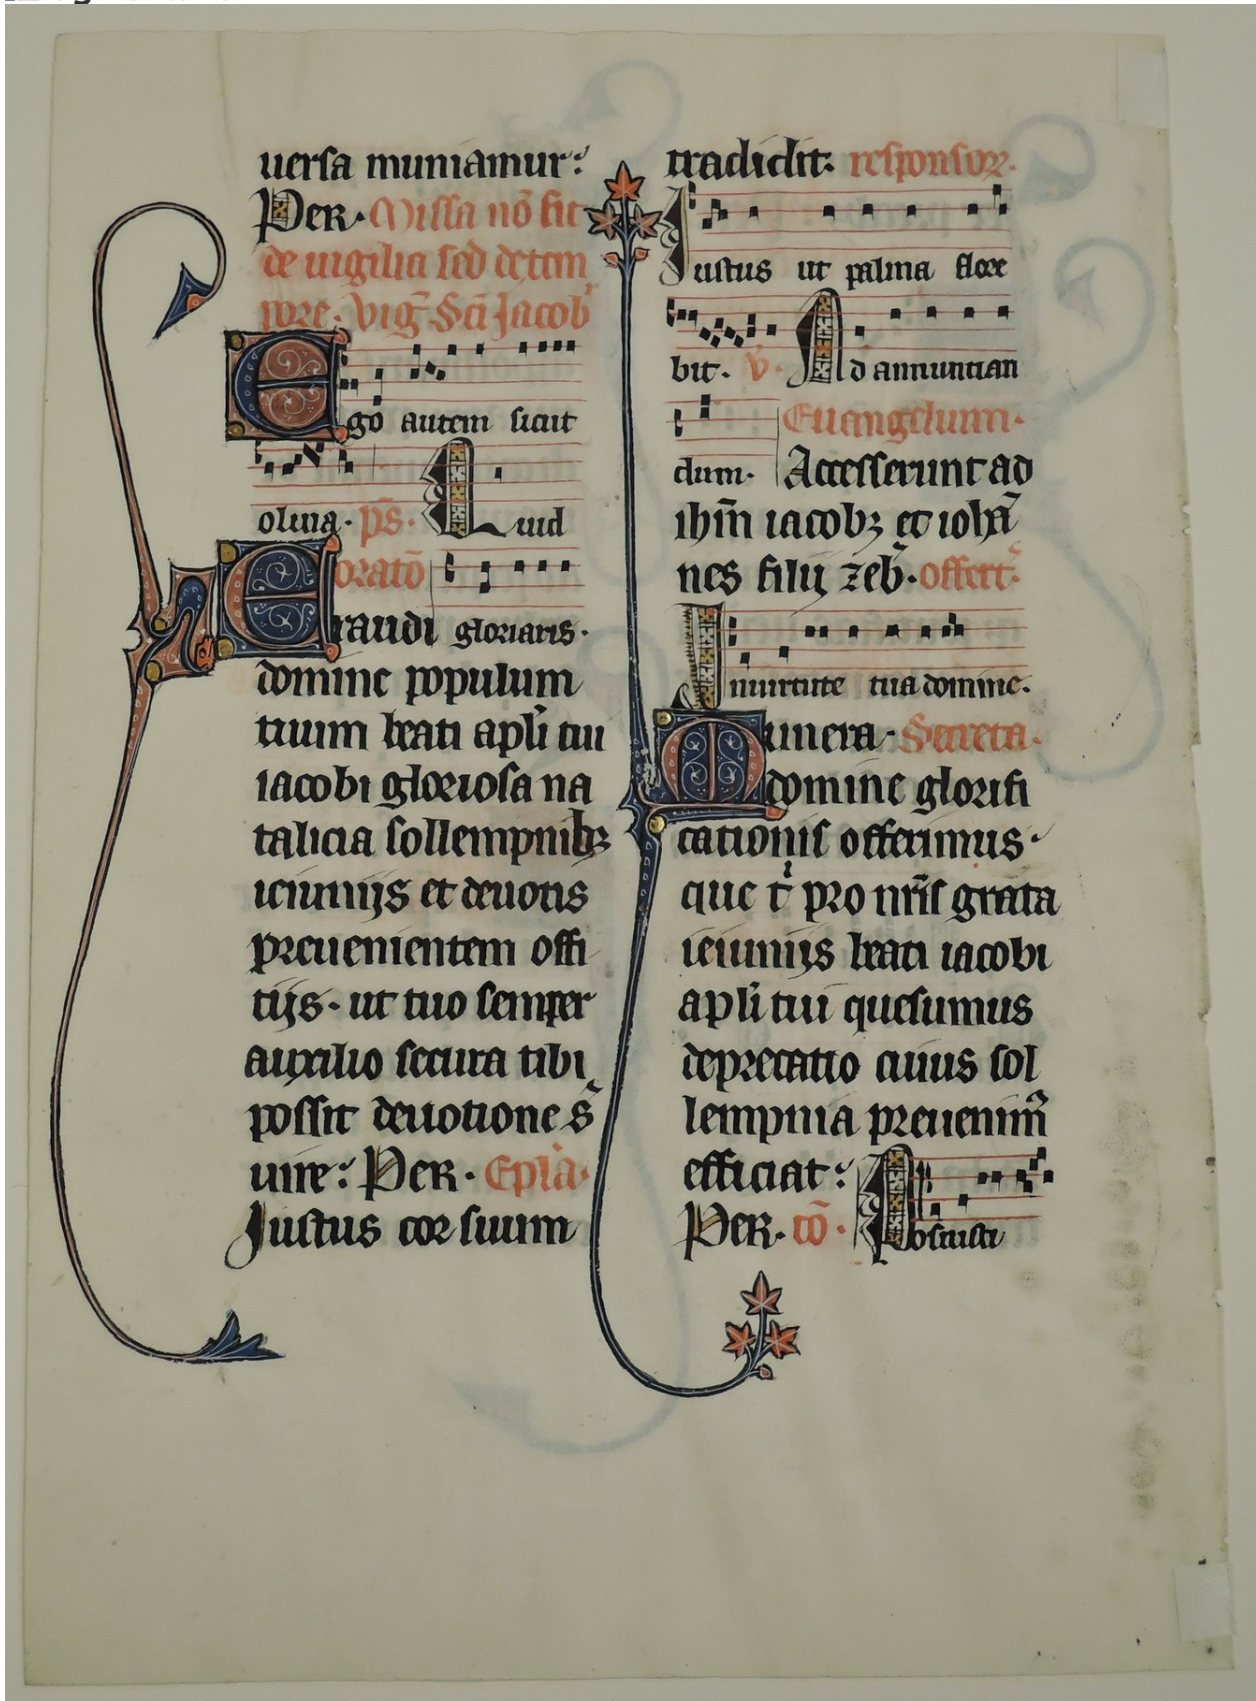 uersa muniamur:
Per. Missa nō fit
de uigilia sed de tem
pore. Vig̃ Sc̃i Jacobi
Ego autem sicut
oliua. p̄s. Quid
Exaudi gloriaris. oratō
domine populum
tuum beati apl̃i tui
iacobi gloriosa na
talicia sollempnibꝫ
ieiunijs et deuotis
preuenientem offi
tijs. ut tuo semper
auxilio secura tibi
possit deuotione s̃
uire: Per. Epl̃a.
Justus cor suum
tradidit. responsor.
Justus ut palma flore
bit. v̄. Ad annuntian
dum. Euangelium.
Accesserunt ad
ihm̃ iacobꝫ et ioha᷒
nes filij zeb̃. offert᷒.
In uirtute tua domine.
Munera. Secreta.
domine glorifi
cationis offerimus.
que tͥ pro nr̃is grata
ieiunijs beati iacobi
apl̃i tui quesumus
deprecatio cuius sol
lempnia preuenim᷒
efficiat:
Per. cō. Posuisti